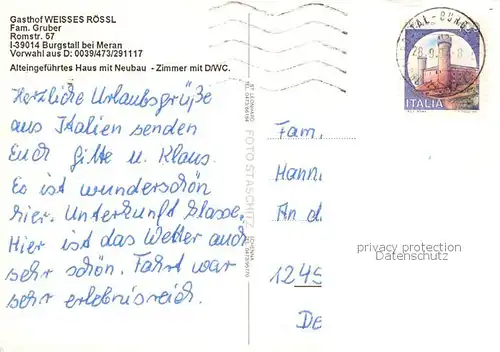 Gasthof WEISSES RÖSSL
Fam. Gruber
Romstr. 57
I-39014 Burgstall bei Meran
Vorwahl aus D: 0039/473/291117
Alteingeführtes Haus mit Neubau - Zimmer mit D/WC.
Herzliche Urlaubsgrüße
aus Italien senden
Euch Gitte u. Klaus.
Es ist wunderschön
hier. Unterkunft klasse.
Hier ist das Wetter auch
sehr schön. Fahrt war
sehr erlebnisreich.
FOTO STASCHITZ
ITALIA
Fam.
Hann
An d
privacy protection
Datenschutz
1245
De